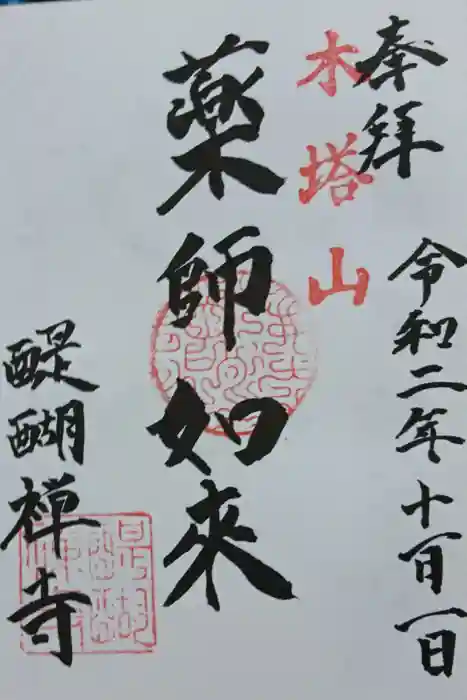 奉拝
令和二年十一月一日
木塔山
薬師如來
醍醐禅寺